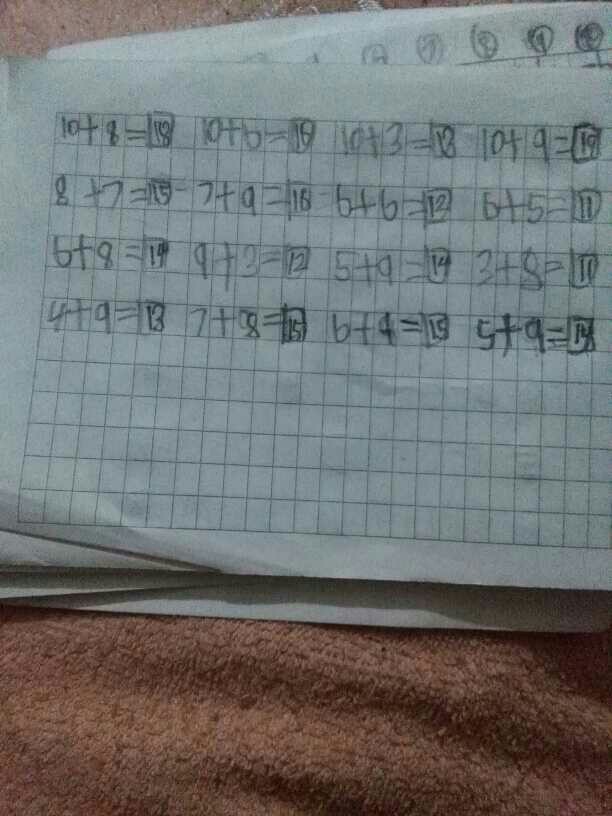 ⑧ ⑨ ⑩
10+8=18 10+6=16 10+3=13 10+9=19
8+7=15 7+9=16 6+6=12 6+5=11
6+8=14 9+3=12 5+9=14 3+8=11
4+9=13 7+8=15 6+9=15 5+9=14